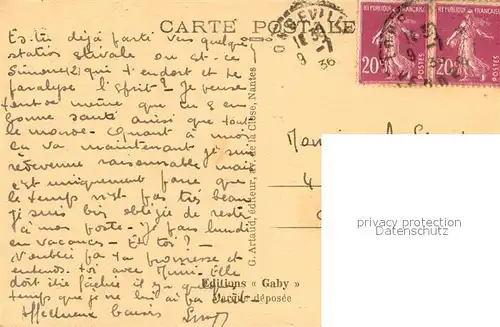 CARTE POSTALE
Es-tu déjà parti vers quelque
station estivale ou est-ce
Simone (2) qui t'endort et te
paralyse l'esprit ? Je pense
tout de même que tu es en
bonne santé ainsi que tout
le monde - Quant à moi
ça va maintenant je suis
redevenue raisonnable mais
c'est uniquement parce que
le temps n'est pas très beau
je suis bien obligée de rester
à mon poste - Je pars lundi
en vacances - Et toi ? -
N'oublie pas ta promesse et
entends-toi avec Mimi - Elle
doit être fâchée il y a quelque
temps que je ne lui ai pas
Affectueux baisers
G. Artaud, éditeur, av. de la Close, Nantes
Editions « Gaby »
Marque déposée
9 36
REPUBLIQUE FRANÇAISE
20c POSTES
REPUBLIQUE FRANÇAISE
20c POSTES
Monsieur
4
privacy protection